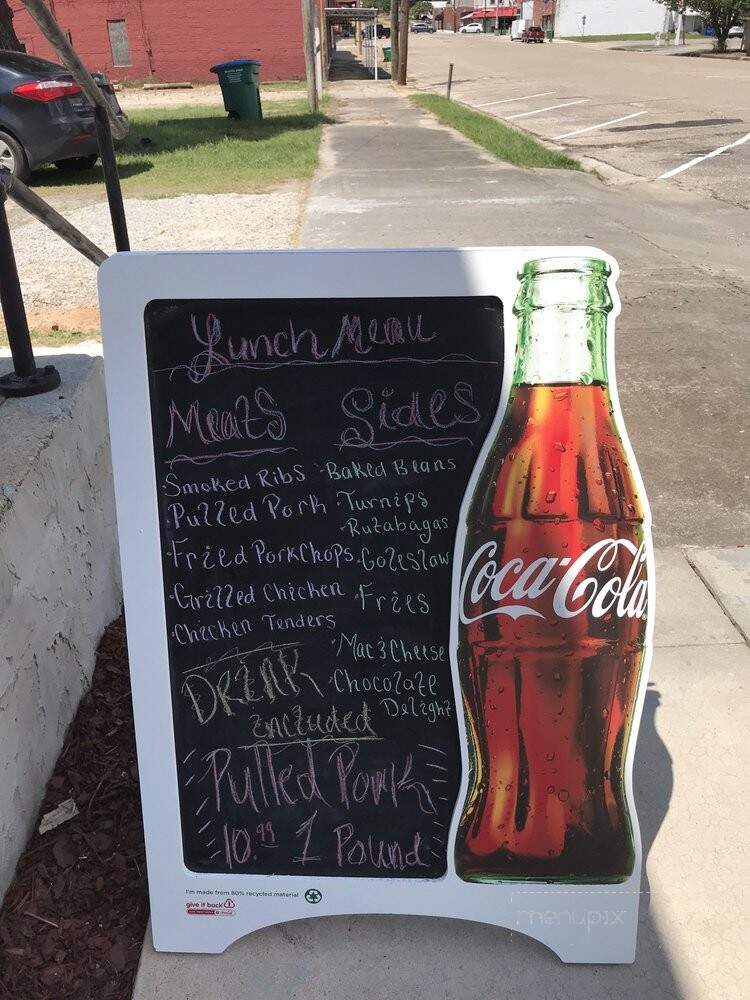 Lunch Menu
Meats
Smoked Ribs
Pulled Pork
Fried PorkChops
Grilled Chicken
Chicken Tenders
Sides
Baked Beans
Turnips
Rutabagas
Coleslaw
Fries
Mac & Cheese
Chocolate
Delight
Drink
included
Pulled Pork
10.99 1 Pound
Coca-Cola
I'm made from 80% recycled material
give it back
menupix